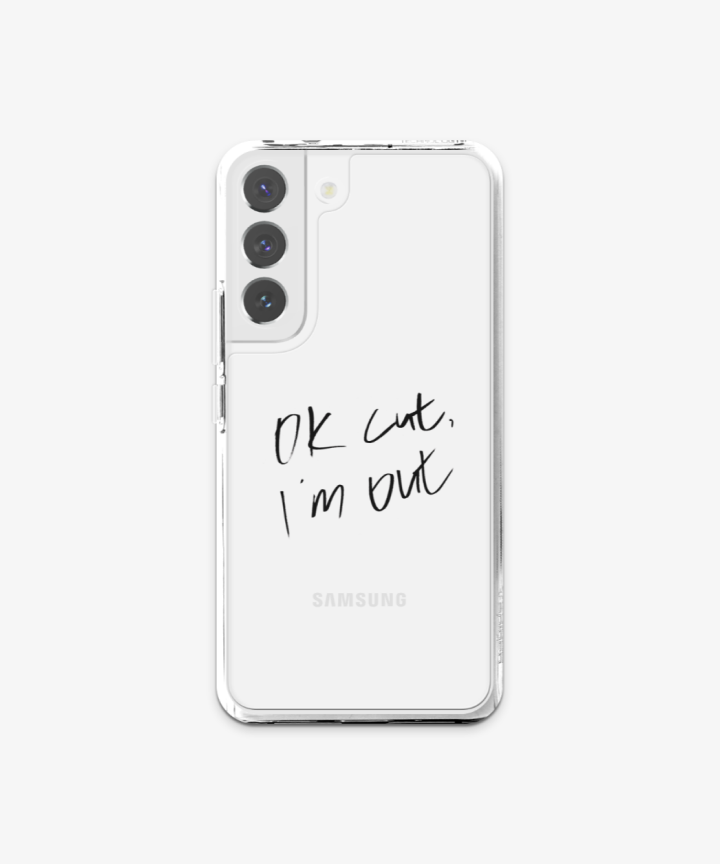 OK cut,
I'm out
SAMSUNG